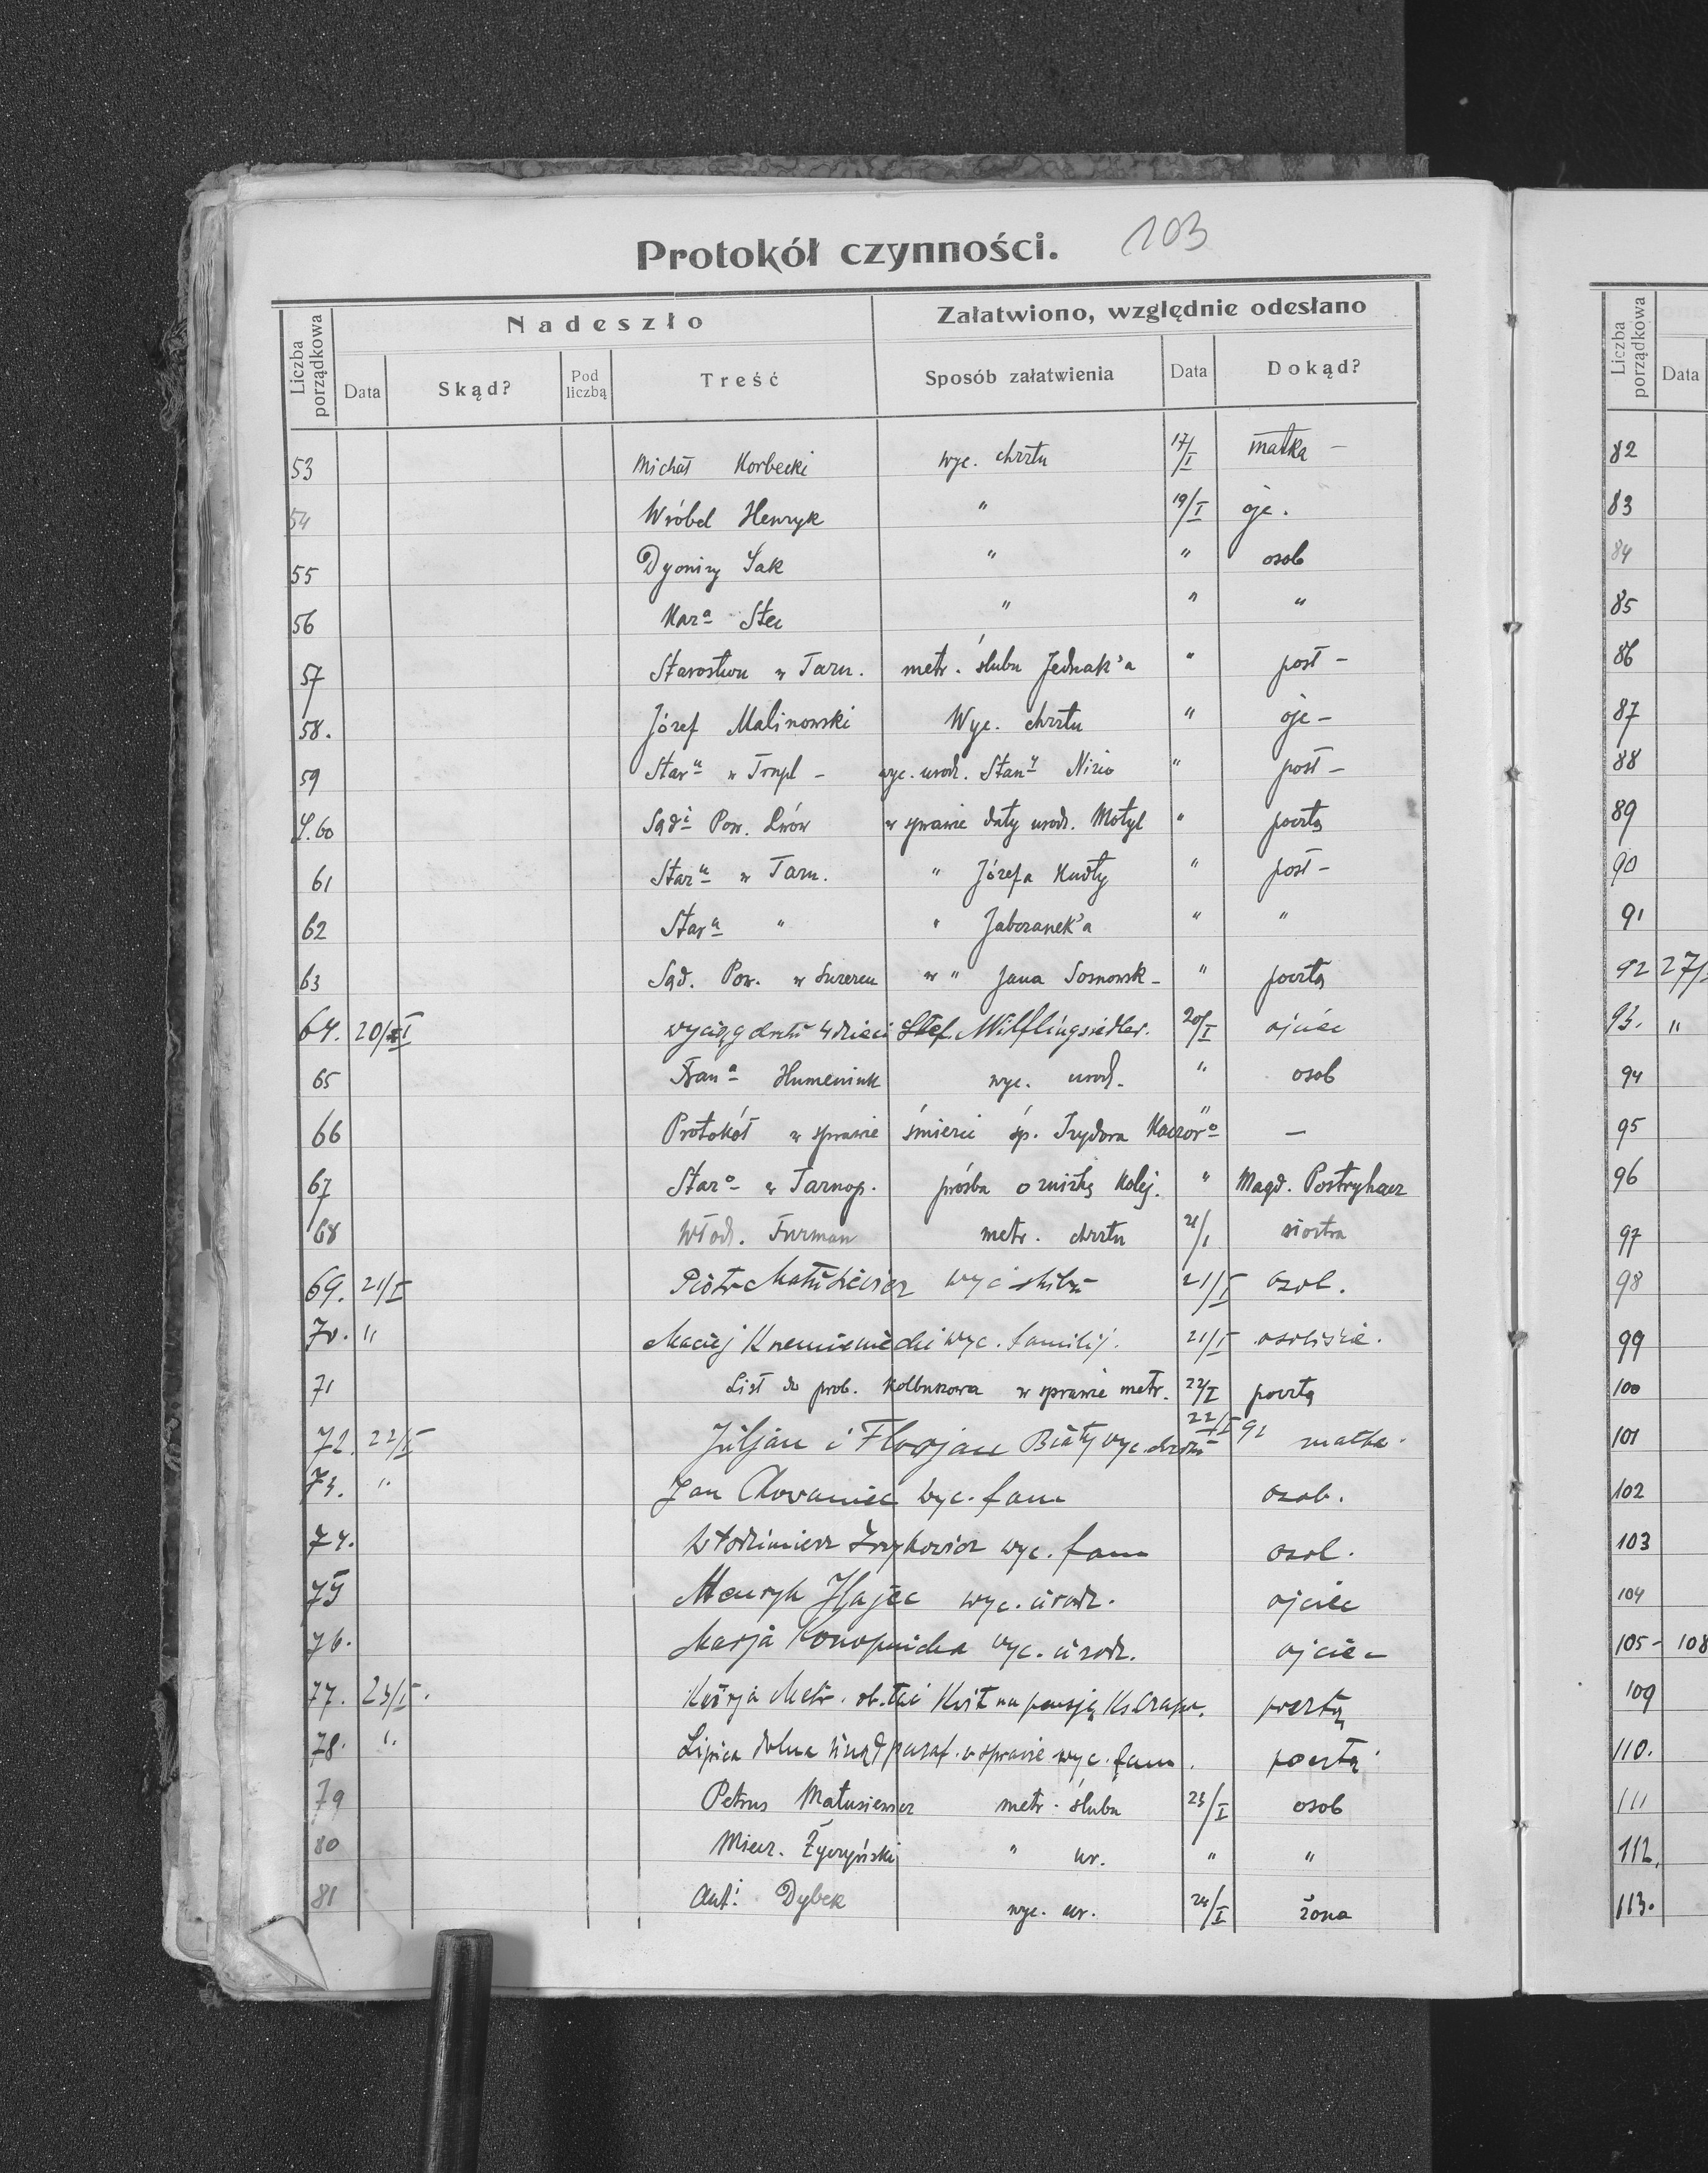 Protokół czynności. 103
Liczba porządkowa
Nadeszło
Załatwiono, względnie odesłano
Data Skąd? Pod liczbą Treść Sposób załatwienia Data Dokąd?
53 Michał Korbecki wyc. chrztu 17/I matka –
54 Wróbel Henryk " 19/I ojc.
55 Dyonizy Sak " " osob
56 Mar<sup>a</sup> Stec " " "
57 Starostwo w Tarn. metr. ślubu Jednak'a " post –
58. Józef Malinowski Wyc. chrztu " ojc –
59 Star<sup>u</sup> w Trnpl – wyc. urodz. Stan<sup>y</sup> " post –
60 Sąd Pow. Lwów w sprawie daty urodz. Motyl " pocztą
61 Star<sup>u</sup> w Tarn. " Józefa Kudły " post –
62 Star<sup>u</sup> " " " "
63 Sąd. Pow. w w " Jana Sosnowsk – " pocztą
64. 20/I wyciąg chrztu 4 dzieci Stef. Wilflingsiedler. 20/I ojciec
65 Fran<sup>a</sup> Humeniuk wyc. urodz. " osob
66 Protokół w sprawie śmierci śp. Izydora " –
67 Star<sup>o</sup> w Tarnop. prośba o zniżkę kolej. " Magd. Postryhacz
68 Włod. Furman metr. chrztu 21/1 siostra
69. 21/I Piotr Matusiewicz wyc ślubu 21/I osob.
70. " Maciej wyc. familij. 21/I osobiście.
71 List do prob. Kolbuszowa w sprawie metr. 22/I pocztą
72. 22/I Juljan i Florjan Biały wyc. chrztu 22/I matka.
73. " Jan Chovaniec wyc. fam osob.
74. Włodzimierz wyc. fam osob.
75 Henryk Hajec wyc. urodz. ojciec
76. Marja Konopnicka wyc. urodz. ojciec
77. 23/I. Kurja Metr. ob. łać Kwit na pensję pocztą
78. " Lipica dolna Urząd paraf. w sprawie wyc. fam. pocztą
79 Petrus Matusiewicz metr. ślubu 23/I osob
80 Miecz. Życzyński " ur. " "
81 Ant<sup>i</sup>. Dybek wyc. ur. 24/I żona
Liczba porządkowa Data
82
83
84
85
86
87
88
89
90
91
92 27/
93. "
94
95
96
97
98
99
100
101
102
103
104
105 – 108
109
110.
111
112.
113.